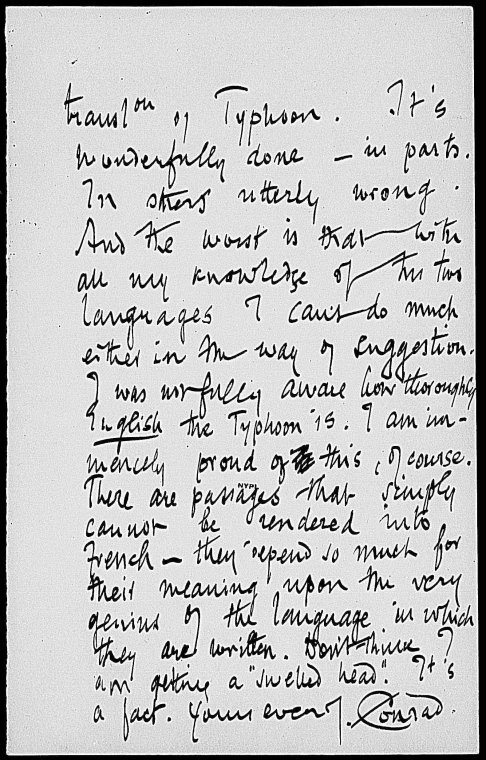 translon of Typhoon. It's
wonderfully done – in parts.
In others utterly wrong.
And the worst is that with
all my knowledge of the two
languages I can't do much
either in the way of suggestion.
I was not fully aware how thoroughly
English the Typhoon is. I am im-
mencely proud of this, of course.
NYPL
There are passages that simply
cannot be rendered into
French – they depend so much for
their meaning upon the very
genius of the language in which
they are written. Don't think I
am getting a "swelled head". It's
a fact. Yours ever J. Conrad.